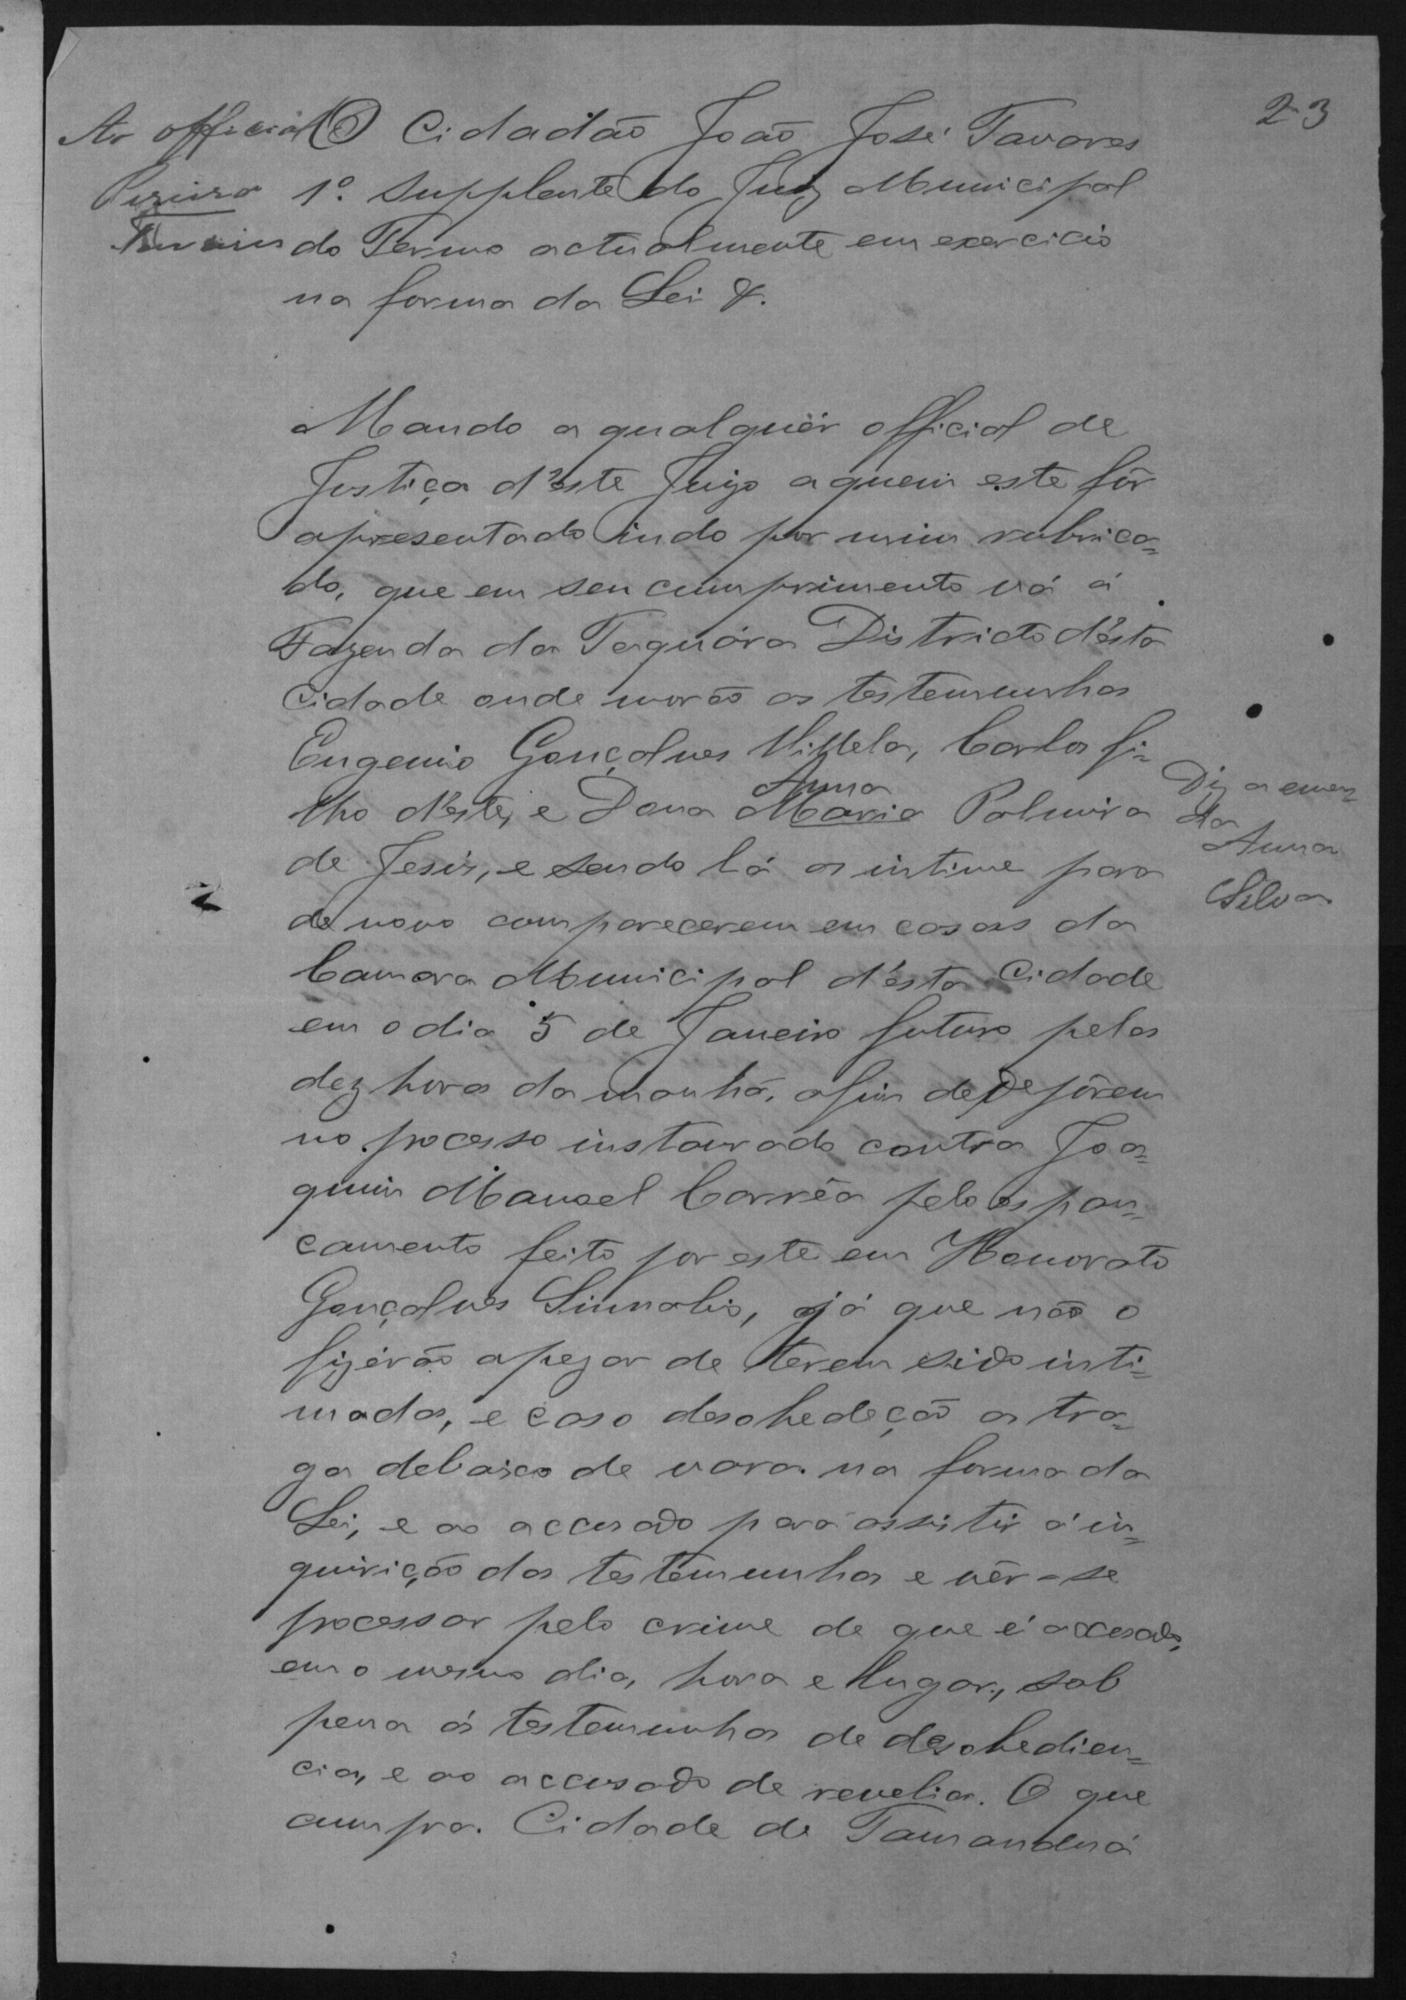 23
Ao official
Pereira
Tavares
O Cidadão João José Tavares
1º. Supplente do Juiz Municipal
do Termo actualmente em exercicio
na forma da Lei &.
Mando a qualquér official de
Justiça d'este Juizo a quem este fôr
apresentado indo por mim rubrica=
do, que em seu cumprimento vá á
Fazenda da Taquára Districto d'ésta
Cidade onde morão as testemunhas
Eugenio Gonçalves Villela, Carlos fi=
lho d'este, e Dona Maria Palmira
Anna
de Jesús, e sendo lá os intime para
de novo comparecerem em casas da
Camara Municipal d'ésta Cidade
em o dia 5 de Janeiro futuro pelas
dez horas da manhã, afim de depôrem
no processo instaurado contra Joa=
quim Manoel Corrêa pelo espan=
camento feito por este em Honorato
Gonçalves, já que não o
fizérão apezar de terem sido inti=
mados, e caso desobedeção os tra=
ga debaixo de vara na forma da
Lei, e ao accusado para assistir á in=
quirição das testemunhas e vêr-se
processar pelo crime de que é accusado,
em o mesmo dia, hora e lugar, sob
pena ás testemunhas de desobedien=
cia, e ao accusado de revelia. O que
cumpra. Cidade de Tamanduá
Diz a emen=
da
Anna
Silva